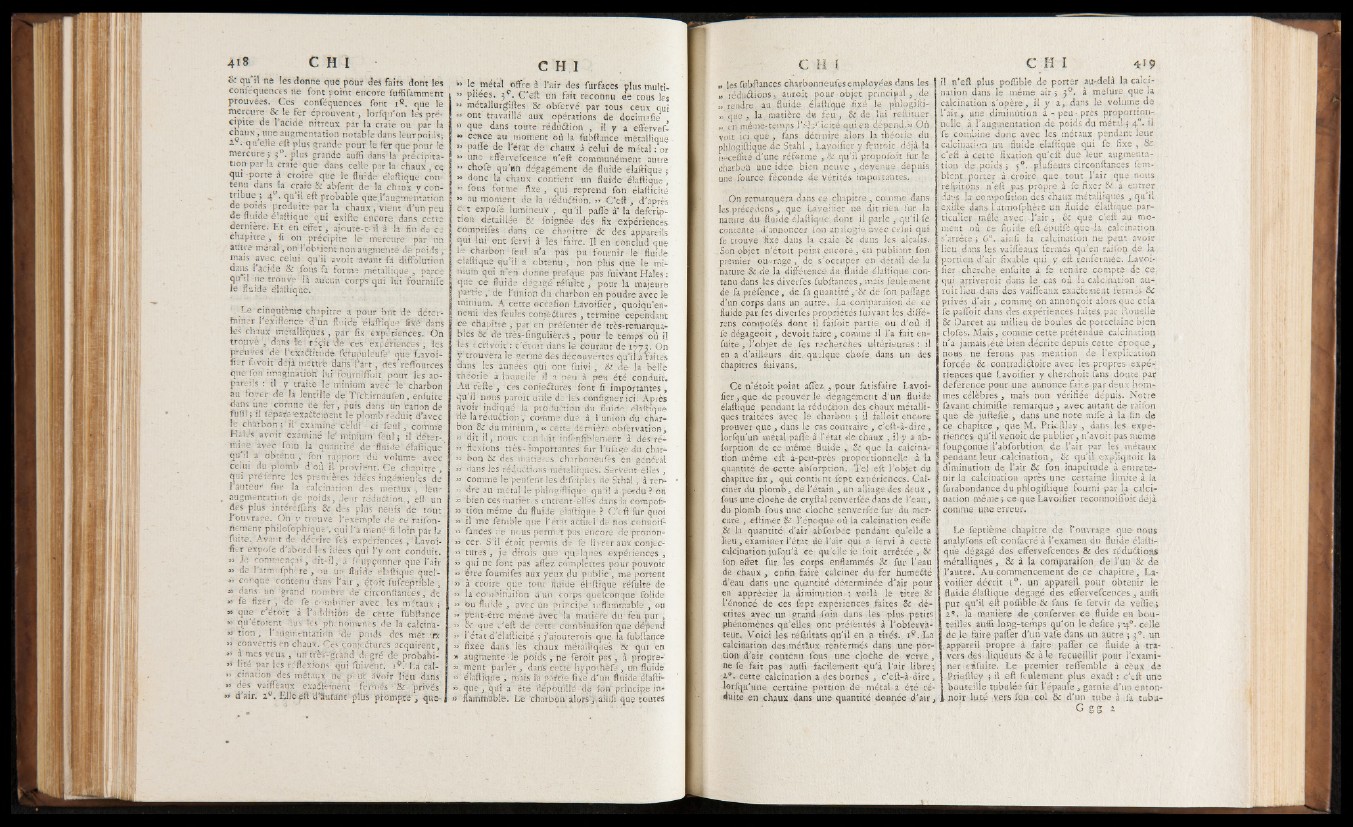 418 C H I
& qu'il ne les donne que pour des faits dont les
conséquences ne sont point encore suffisamment
prouvées. Ces conséquences sont 1°. que le
mercure & le fer éprouvent, lorsqu'on les pré-
cipite de l'acide nitreux par la craie ou par la
chaux, une augmentation notable dans leur poids;
2°. qu'elle est plus grande pour le fer que pour le
mercure; 3°. plus grande aussi dans la précipita-
tion par la craie que dans celle par la chaux, ce
qui porte à croire que le fluide élastique con-
tenu dans la craie & absent de la chaux y con-
tribue; 4°. qu'il est probable que l'augmentation
de poids produite par la chaux, vient d'un peu
de fluide élastique qui existe encore dans cette
dernière. Et en effet, ajoute-t-il à la fin de ce
chapitre, si on précipite le mercure par un
autre métal, on l'obtient non augmenté de poids,
mais avec celui qu'il avoit avant sa dissolution
dans l'acide & sous sa forme métallique, parce
qu'il ne trouve là aucun corps qui lui fournisse
le fluide élastique.
Le cinquième chapitre a pour but de déter-
miner l'existence d'un fluide élastique fixé dans
les chaux métalliques, par six expériences. On
trouve, dans le récit de ces expériences, les
preuves de l'exactitude scrupuleuse que Lavoi-
sier savoit déjà mettre dans l'art, des ressources
que son imagination lui fournissoit pour les ap-
pareils: il y traite le minium avec le charbon
au foyer de la lentille de Tschirnausen, ensuite
dans une cornue de fer, puis dans un canon de
fusil; il sépare exactement le plomb réduit d'avec
le charbon; il examine celui-ci seul, comme
Hales avoit examiné le minium seul; il déter-
mine avec soin la quantité de fluide élastique
qu'il a obtenu, son rapport du volume avec
celui du plomb d'où il provient. Ce chapitre,
qui présente les premières idées ingénieuses de
l'auteur sur la calcination des métaux, leur
augmentation de poids, leur réduction, est un
des plus intéressans & des plus neufs de tout
l'ouvrage. On y trouve l'exemple de ce raison-
nement philosophique, qui l'a mené si loin par la
suite. Avant de décrire ses expériences, Lavoi-
sier expose d'abord les idées qui l'y ont conduit.
» Je commençai, dit-il, à soupçonner que l'air
» de l'atmosphère, ou un fluide élastique quel-
» conque contenu dans l'air, étoit susceptible,
» dans un grand nombre de circonstances, de
» se fixer, de se combiner avec les métaux;
» que c'étoit à l'addition de cette substance
» qu'étoient dus les phénomènes de la calcina-
» tion, l'augmentation de poids des métaux
» convertis en chaux. Ces conjectures acquirent,
» à mes yeux, un très-grand degré de probabi-
» lité par les réflexions qui suivent. 1°. La cal-
» cination des métaux ne peut avoir lieu dans
» des vaisseaux exactement fermés & privés
» d'air. 2°. Elle est d'autant plus prompte, que
C H I
» le métal offre à l'air des surfaces plus multi-
» pliées. 3°. C'est un fait reconnu de tous les
» métallurgistes & observé par tous ceux qui
» ont travaillé aux opérations de docimasie,
» que dans toute réduction, il y a efferves-
» cence au moment où la substance métallique
» passe de l'état de chaux à celui de métal: or
» une effervescence n'est communément autre
» chose qu'un dégagement de fluide élastique;
» donc la chaux contient un fluide élastique,
» sous forme fixe, qui reprend son élasticité
» au moment de la réduction. » C'est, d'après
cet exposé lumineux, qu'il passe à la descrip-
tion détaillée & soignée des six expériences
comprises dans ce chapitre & des appareils
qui lui ont servi à les faire. Il en conclud que
le charbon seul n'a pas pu fournir le fluide
élastique qu'il a obtenu, non plus que le mi-
nium qui n'en donne presque pas suivant Hales:
que ce fluide dégagé résulte, pour la majeure
partie, de l'union du charbon en poudre avec le
minium. A cette occasion Lavoisier, quoiqu'en-
nemi des seules conjectures, termine cependant
ce chapitre, par en présenter de très-remarqua-
bles & de très-singulières, pour le temps où il
les écrivoit: c'étoit dans le courant de 1773. On
y trouvera le germe des découvertes qu'il a faites
dans les années qui ont suivi, & de la belle
théorie à laquelle il a peu à peu été conduit.
Au reste, ces conjectures sont si importantes,
qu'il nous paroît utile de les consigner ici. Après
avoir indiqué la production du fluide élastique
de la réduction, comme due à l'union du char-
bon & du minium, » cette dernière observation,
» dit-il, nous conduit insensiblement à des ré-
» flexions très-importantes sur l'usage du char-
» bon & des matières charbonneuses en général
» dans les réductions métalliques. Servent-elles,
» comme le pensent les disciples de Stahl, à ren-
» dre au métal le phlogistique qu'il a perdu? ou
» bien ces matières entrent-elles dans la composi-
» tion même du fluide élastique? C'est sur quoi
» il me semble que l'état actuel de nos connois-
» sances ne nous permet pas encore de pronon-
» cer. S'il étoit permis de se livrer aux conjec-
» tures, je dirois que quelques expériences,
» qui ne sont pas assez complettes pour pouvoir
» être soumises aux yeux du public, me portent
» à croire que tout fluide élastique résulte de
» la combinaison d'un corps quelconque solide
» ou fluide, avec un principe inflammable, ou
» peut-être même avec la matière du feu pur,
» & que c'est de cette combinaison que dépend
» l'état d'élasticité; j'ajouterois que la substance
» fixée dans les chaux métalliques & qui en
» augmente le poids, ne seroit pas, à propre-
» ment parler, dans cette hypothèse, un fluide
» élastique, mais la partie fixe d'un fluide élasti-
» que, qui a été dépouillé de son principe in-
» flammable. Le charbon alors, ainsi que toutes
C H I
» les substances charbonneuses employées dans les
» réductions, auroit pour objet principal, de
» rendre au fluide élastique fixé le phlogisti-
» que, la matière du feu, & de lui restituer
» en même-temps l'élasticité qui en dépend. » On
voit ici que, sans détruire alors la théorie du
phlogistique de Stahl, Lavoisier y sentoit déjà la
nécessité d'une réforme, & qu'il proposoit sur le
charbon une idée bien neuve, devenue depuis
une source féconde de vérités importantes.
On remarquera dans ce chapitre, comme dans
les précédens, que Lavoisier ne dit rien sur la
nature du fluide élastique dont il parle, qu'il se
contente d'annoncer son analogie avec celui qui
se trouve fixé dans la craie & dans les alcalis.
Son objet n'étoit point encore, en publiant son
premier ouvrage, de s'occuper en détail de la
nature & de la différence du fluide élastique con-
tenu dans les diverses substances, mais seulement
de sa présence, de sa quantité, & de son passage
d'un corps dans un autre. La comparaison de ce
fluide par ses diverses propriétés suivant les diffé-
rens composés dont il faisoit partie ou d'où il
se dégageoit, devoit faire, comme il l'a fait en-
suite, l'objet de ses recherches ultérieures: il
en a d'ailleurs dit quelque chose dans un des
chapitres suivans.
Ce n'étoit point assez, pour satisfaire Lavoi-
sier, que de prouver le dégagement d'un fluide
élastique pendant la réduction des chaux métalli-
ques traitées avec le charbon; il falloit encore
prouver que, dans le cas contraire, c'est-à-dire,
lorsqu'un métal passe à l'état de chaux, il y a ab-
sorption de ce même fluide, & que la calcina-
tion même est à-peu-près proportionnelle à la
quantité de cette absorption. Tel est l'objet du
chapitre six, qui contient sept expériences. Cal-
ciner du plomb, de l'étain, un alliage des deux,
sous une cloche de crystal renversée dans de l'eau,
du plomb sous une cloche renversée sur du mer-
cure, estimer & l'époque où la calcination cesse
& la quantité d'air absorbée pendant qu'elle a
lieu, examiner l'état de l'air qui a servi à cette
calcination jusqu'à ce qu'elle se soit arrêtée, &
son effet sur les corps enflammés & sur l'eau
de chaux, enfin faire calciner du fer humecté
d'eau dans une quantité déterminée d'air pour
en apprécier la diminution: voilà le titre &
l'énoncé de ces sept expériences faites & dé-
crites avec un grand soin dans les plus petits
phénomènes qu'elles ont présentés à l'observa-
teur. Voici les résultats qu'il en a tirés. 1°. La
calcination des métaux renfermés dans une por-
tion d'air contenu sous une cloche de verre,
ne se fait pas aussi facilement qu'à l'air libre;
2°. cette calcination a des bornes, c'est-à-dire,
lorsqu'une certaine portion de métal a été ré-
duite en chaux dans une quantité donnée d'air,
C H I 419
il n'est plus possible de porter au-delà la calci-
nation dans le même air; 3°. à mesure que la
calcination s'opère, il y a, dans le volume de
l'air, une diminution à-peu-près proportion-
nelle à l'augmentation de poids du métal; 4°. il
se combine donc avec les métaux pendant leur
calcination un fluide élastique qui se fixe, &
c'est à cette fixation qu'est due leur augmenta-
tion de poids; 5°. plusieurs circonstances sem-
blent porter à croire que tout l'air que nous
respirons n'est pas propre à se fixer & à entrer
dans la composition des chaux métalliques, qu'il
existe dans l'atmosphère un fluide élastique par-
ticulier mêlé avec l'air, & que c'est au mo-
ment où ce fluide est épuisé que la calcination
s'arrête; 6°. ainsi la calcination ne peut avoir
lieu dans les vaisseaux fermés qu'en raison de la
portion d'air fixable qui y est renfermée. Lavoi-
sier cherche ensuite à se rendre compte de ce
qui arriveroit dans le cas où la calcination au-
roit lieu dans des vaisseaux exactement fermés &
privés d'air, comme on annonçoit alors que cela
se passoit dans des expériences faites par Rouelle
& Darcet au milieu de boules de porcelaine bien
closes. Mais, comme cette prétendue calcination
n'a jamais été bien décrite depuis cette époque,
nous ne ferons pas mention de l'explication
forcée & contradictoire avec les propres expé-
riences que Lavoisier y cherchoit sans doute par
déférence pour une annonce faite par deux hom-
mes célèbres, mais non vérifiée depuis. Notre
savant chimiste remarque, avec autant de raison
que de justesse, dans une note mise à la fin de
ce chapitre, que M. Priestley, dans les expé-
riences qu'il venoit de publier, n'avoit pas même
soupçonné l'absorbtion de l'air par les métaux
pendant leur calcination, & qu'il expliquoit la
diminution de l'air & son inaptitude à entrete-
nir la calcination après une certaine limite à la
surabondance du phlogistique fourni par la calci-
nation même; ce que Lavoisier reconnoissoit déjà
comme une erreur.
Le septième chapitre de l'ouvrage que nous
analysons est consacré à l'examen du fluide élasti-
que dégagé des effervescences & des réductions
métalliques, & à la comparaison de l'un & de
l'autre. Au commencement de ce chapitre, La-
voisier décrit 1°. un appareil pour obtenir le
fluide élastique dégagé des effervescences, aussi
pur qu'il est possible & sans se servir de vessie;
2°. la manière de conserver ce fluide en bou-
teilles aussi long-temps qu'on le desire; 4°. celle
de le faire passer d'un vase dans un autre; 3°. un
appareil propre à faire passer ce fluide à tra-
vers des liqueurs & à le recueillir pour l'exami-
ner ensuite. Le premier ressemble à ceux de
Priestley; il est seulement plus exact: c'est une
bouteille tubulée sur l'épaule, garnie d'un enton-
noir luté vers son col & d'un tube à sa tubu-
G g g 2